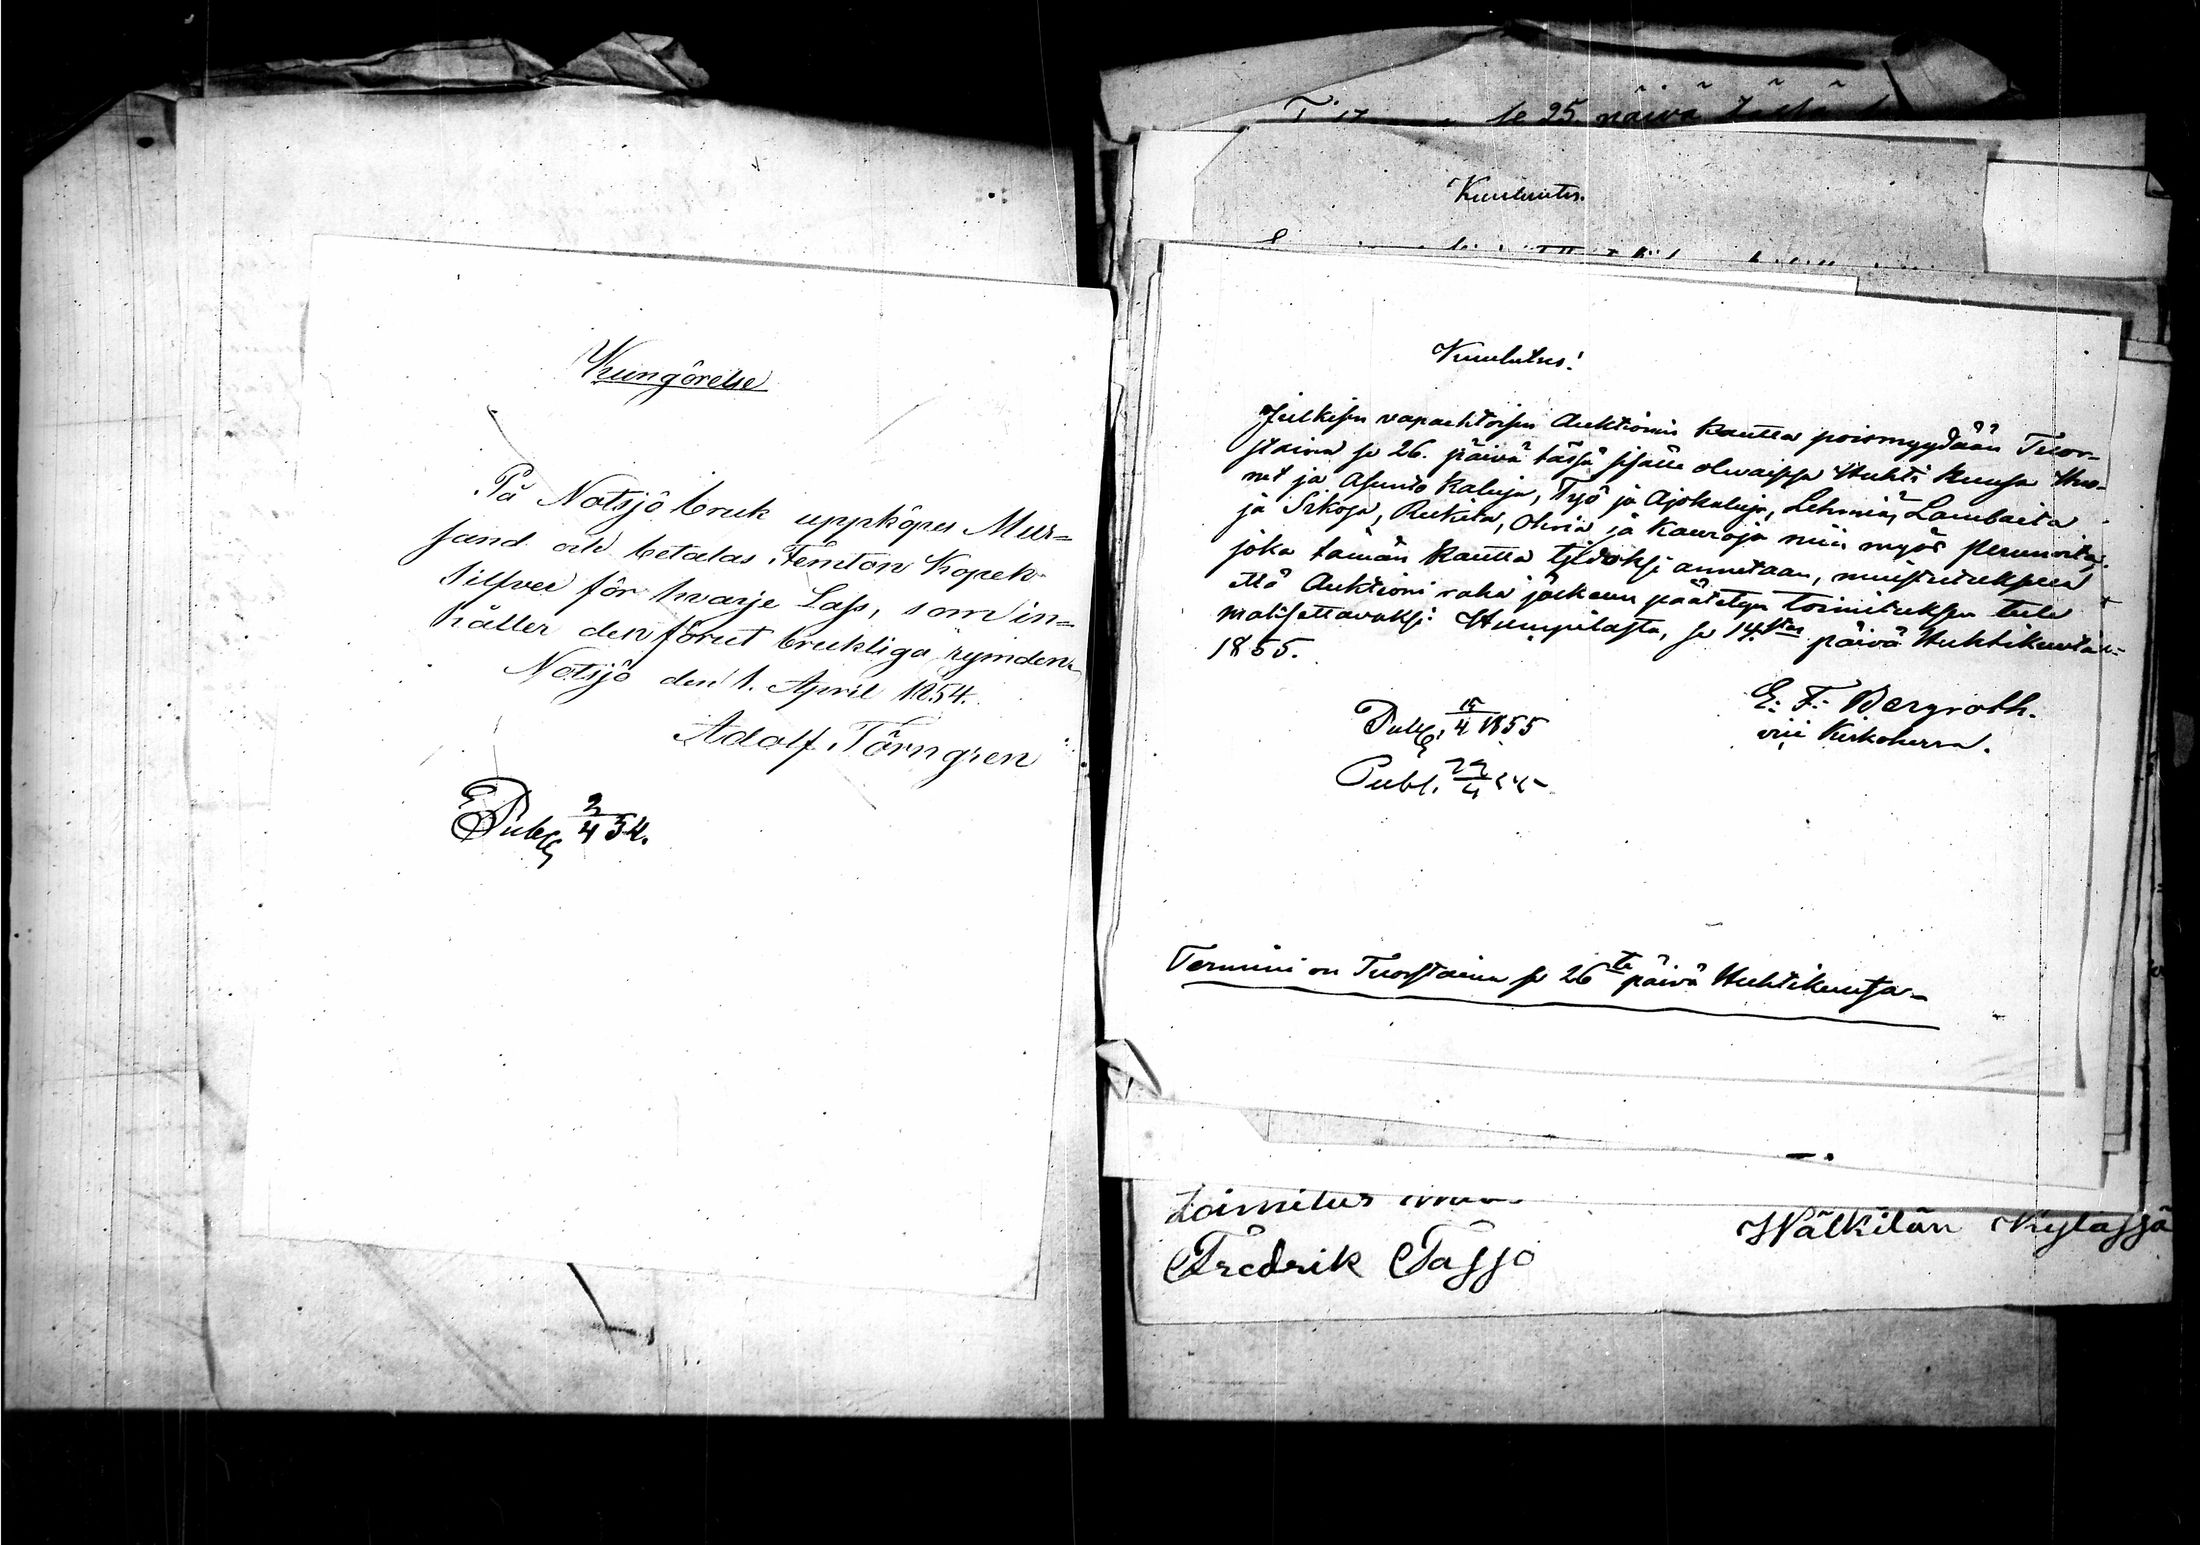 Kungörelse
På Notsjö bruk uppköpes Mur=
sand och betalas Femton Kopek
Silfver för hvarje Lass, som in=
håller den förut brukliga rymden
Notsjö den 1. April 1854.
Adolf Törngren
Publ 2/4 54.
se 25. päivä
Kuulutus.
Kuulutus!
Julkisen vapaehtoisen Auktionin kautta poismyydään Tuor-
staina se 26. päivä tässä sisälle olevaissa Huhti kuussa Huo-
net ja Asunto Kaluja, Työ ja Ajokaluja, Lehmiä, Lambaita
ja Sikoja, Rukita, Ohria ja Kauroja niin myös perunoita,
joka tämän kautta tiedoksi annetaan, muistutuksella
että Auktioni raha jälkeen päätetyn toimituksen tule
maksettavaksi. Humpilasta, se 14sta päivä Huhtikuuta
1855.
E. F. Bergroth.
vii Kirkoherra.
Publ. 15/4 1855
Publ. 22/4 55
Termini on Tuorstaina se 26ta päivä Huhtikuusa
toimitus
Fredrik Tasso
Wälkilän Kylassä